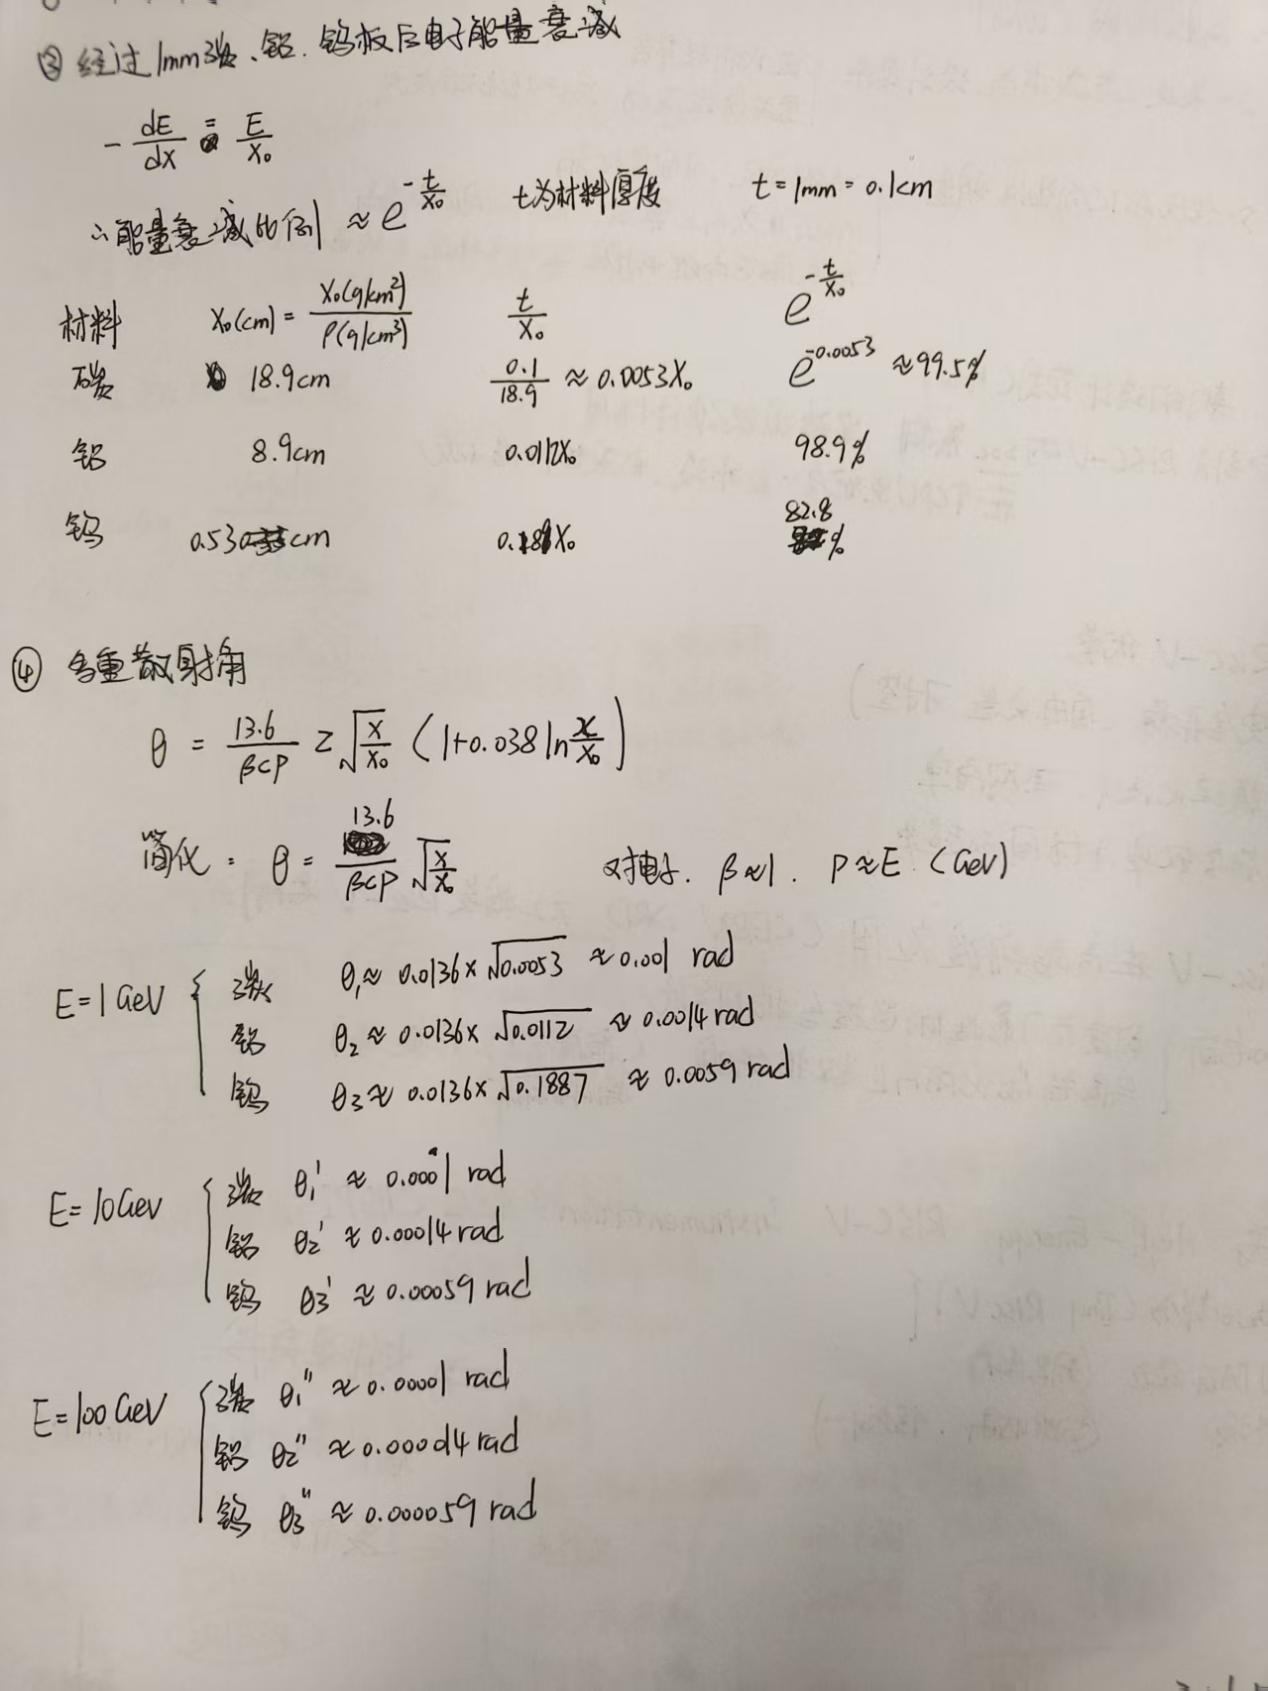 ③ 经过1mm碳、铝、钨板后电子能量衰减
-dE/dx = E/X₀
∴能量衰减比例 ≈ e^(-t/X₀) t为材料厚度 t=1mm=0.1cm
材料 X₀(cm) = X₀(g/cm²)/ρ(g/cm³) t/X₀ e^(-t/X₀)
碳 18.9cm 0.1/18.9 ≈ 0.0053X₀ e^(-0.0053) ≈99.5%
铝 8.9cm 0.0112X₀ 98.9%
钨 0.530cm 0.189X₀ 82.8%
④ 多重散射角
θ = 13.6/βcp z√(x/X₀) (1+0.038 ln x/X₀)
简化: θ = 13.6/βcp √(x/X₀) 对电子. β≈1. P≈E (GeV)
E=1GeV { 碳 θ₁≈ 0.0136×√0.0053 ≈0.001 rad
铝 θ₂ ≈ 0.0136×√0.0112 ≈ 0.0014rad
钨 θ₃≈ 0.0136×√0.1887 ≈ 0.0059 rad
E=10GeV { 碳 θ₁' ≈ 0.0001 rad
铝 θ₂' ≈ 0.00014rad
钨 θ₃' ≈ 0.00059 rad
E=100GeV { 碳 θ₁" ≈0.00001 rad
铝 θ₂" ≈0.000014 rad
钨 θ₃" ≈ 0.000059 rad